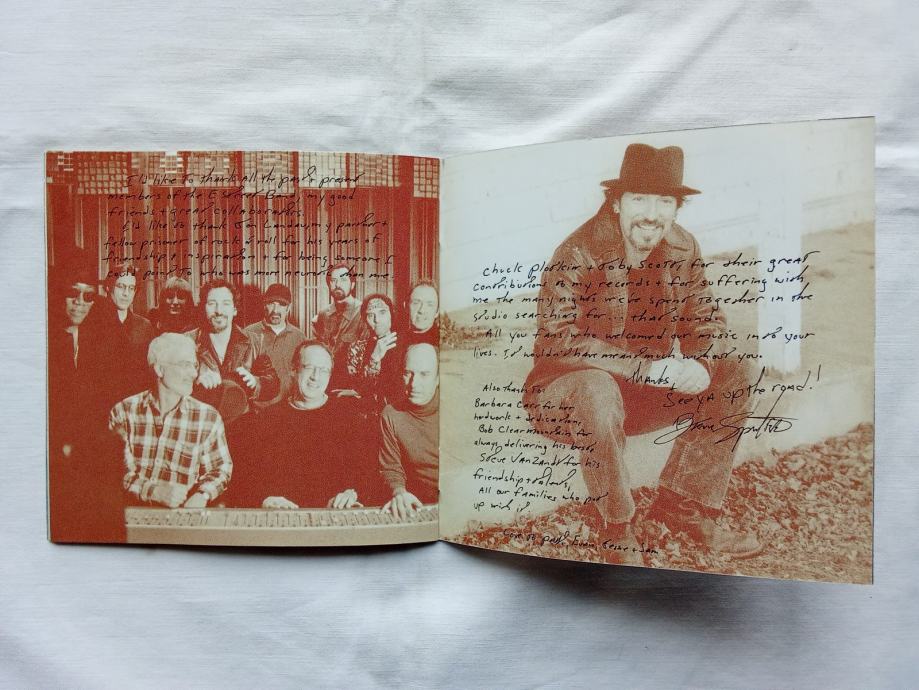 I'd like to thank All the past + present
members of the E Street Band, my good
friends + great collaborators.
I'd like to thank Jon Landau, my partner +
fellow prisoner of rock + roll for his years of
friendship + inspiration + for being someone I
could point to who was more neurotic than me.
Chuck Plotkin + Toby Scott, for their great
contributions to my records + for suffering with
me the many nights we've spent together in the
studio searching for... that sound.
All you fans who welcomed our music into your
lives. It wouldn't have meant much without you.
thanks +
See YA up the road!
Bruce Springsteen
Also thanks to:
Barbara Carr for her
hardwork + dedication,
Bob Clearmountain for
always delivering his best,
Steve VanZandt for his
friendship + talents,
All our families who put
up with it
Love to Patti, Evan, Jesse + Sam